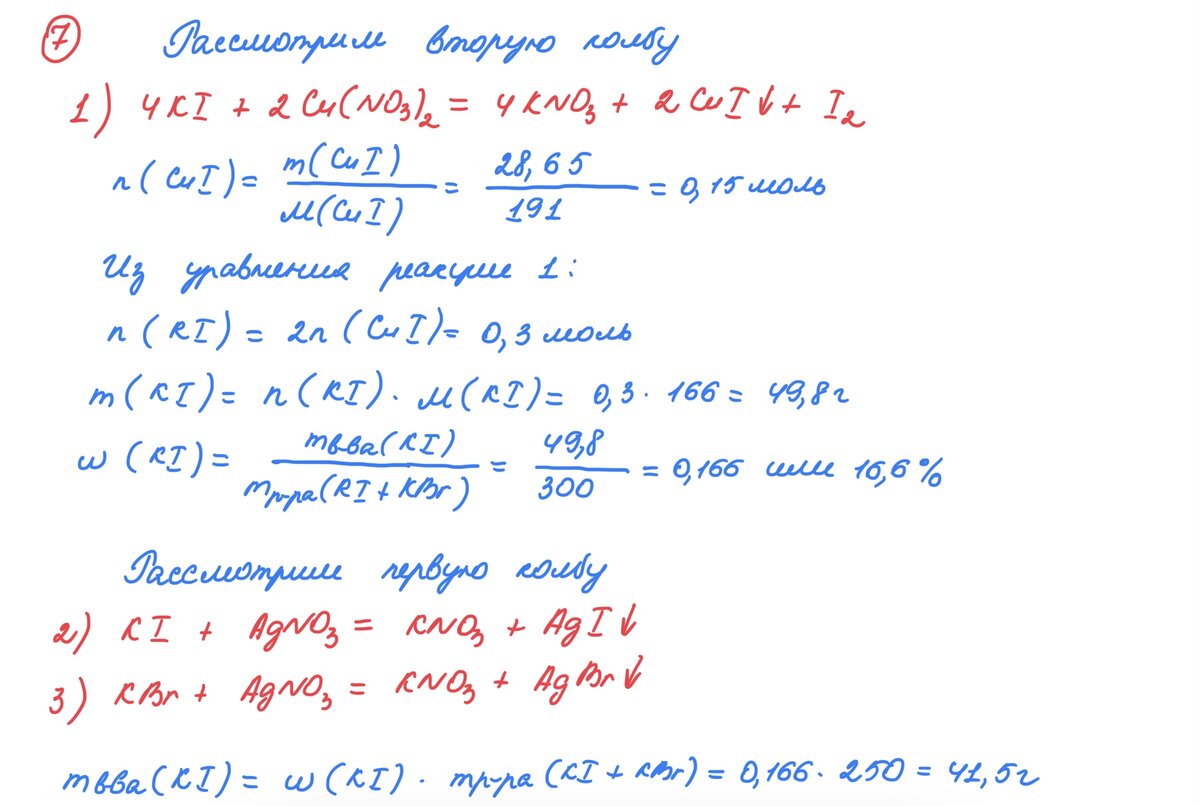 7 Рассмотрим вторую колбу
1) 4KI + 2Cu(NO₃)₂ = 4KNO₃ + 2CuI↓ + I₂
n(CuI) = m(CuI)/M(CuI) = 28,65/191 = 0,15 моль
Из уравнения реакции 1:
n(KI) = 2n(CuI) = 0,3 моль
m(KI) = n(KI) · M(KI) = 0,3 · 166 = 49,8 г
ω(KI) = mв-ва(KI)/mр-ра(KI + KBr) = 49,8/300 = 0,166 или 16,6%
Рассмотрим первую колбу
2) KI + AgNO₃ = KNO₃ + AgI↓
3) KBr + AgNO₃ = KNO₃ + AgBr↓
mв-ва(KI) = ω(KI) · mр-ра(KI + KBr) = 0,166 · 250 = 41,5 г